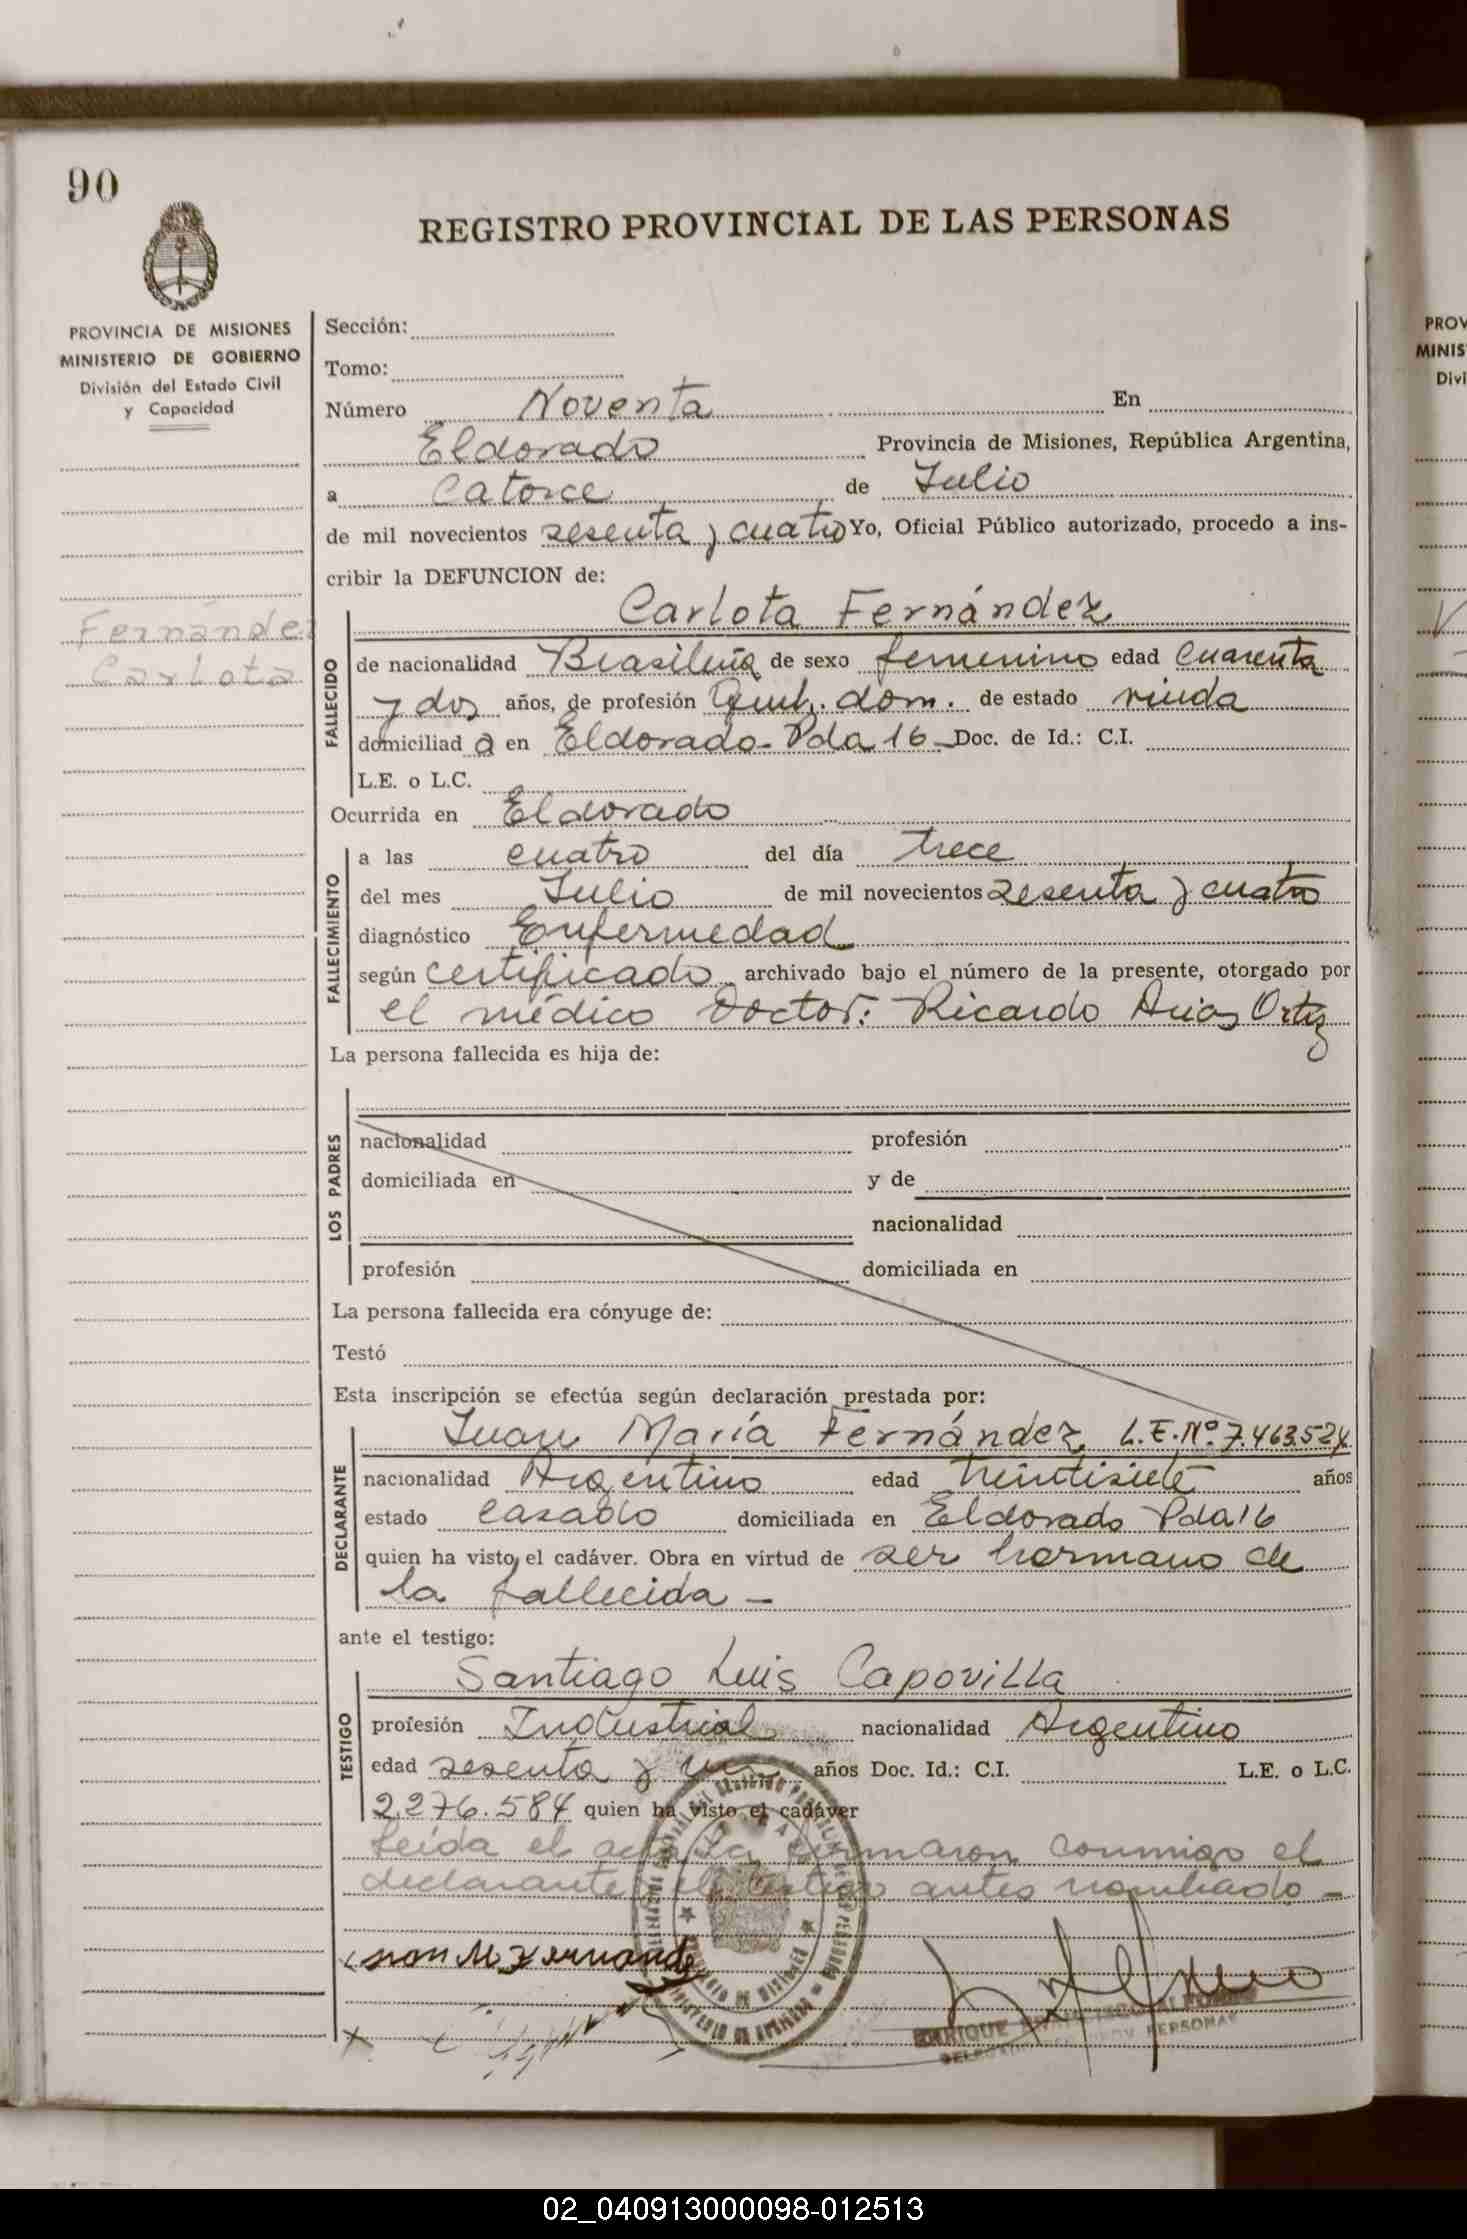 90
REGISTRO PROVINCIAL DE LAS PERSONAS
PROVINCIA DE MISIONES
MINISTERIO DE GOBIERNO
División del Estado Civil
y Capacidad
Fernández
Carlota
Sección:
Tomo:
Número Noventa En
Eldorado Provincia de Misiones, República Argentina,
a Catorce de Julio
de mil novecientos sesenta y cuatro Yo, Oficial Público autorizado, procedo a ins-
cribir la DEFUNCION de:
Carlota Fernández
FALLECIDO
de nacionalidad Brasileña de sexo femenino edad Cuarenta
y dos años, de profesión Queh. dom. de estado viuda
domiciliad a en Eldorado - Pda 16 - Doc. de Id.: C.I.
L.E. o L.C.
Ocurrida en Eldorado
FALLECIMIENTO
a las cuatro del día trece
del mes Julio de mil novecientos sesenta y cuatro
diagnóstico Enfermedad
según certificado archivado bajo el número de la presente, otorgado por
el médico Doctor: Ricardo Arias Ortiz
La persona fallecida es hija de:
LOS PADRES
nacionalidad profesión
domiciliada en y de
nacionalidad
profesión domiciliada en
La persona fallecida era cónyuge de:
Testó
Esta inscripción se efectúa según declaración prestada por:
DECLARANTE
Juan María Fernández L.E. Nº. 7.463.524
nacionalidad Argentino edad treintisiete años
estado casado domiciliada en Eldorado Pda 16
quien ha visto el cadáver. Obra en virtud de ser hermano de
la fallecida -
ante el testigo:
TESTIGO
Santiago Luis Capovilla
profesión Industrial nacionalidad Argentino
edad sesenta y un años Doc. Id.: C.I. L.E. o L.C.
2.276.584 quien ha visto el cadáver
Leída el acta la firmaron conmigo el
declarante y el testigo antes nombrado -
Juan M Fernande
ENRIQUE FRANCISCO
PERSONAS
PROV
MINIS
Divi
02_040913000098-012513